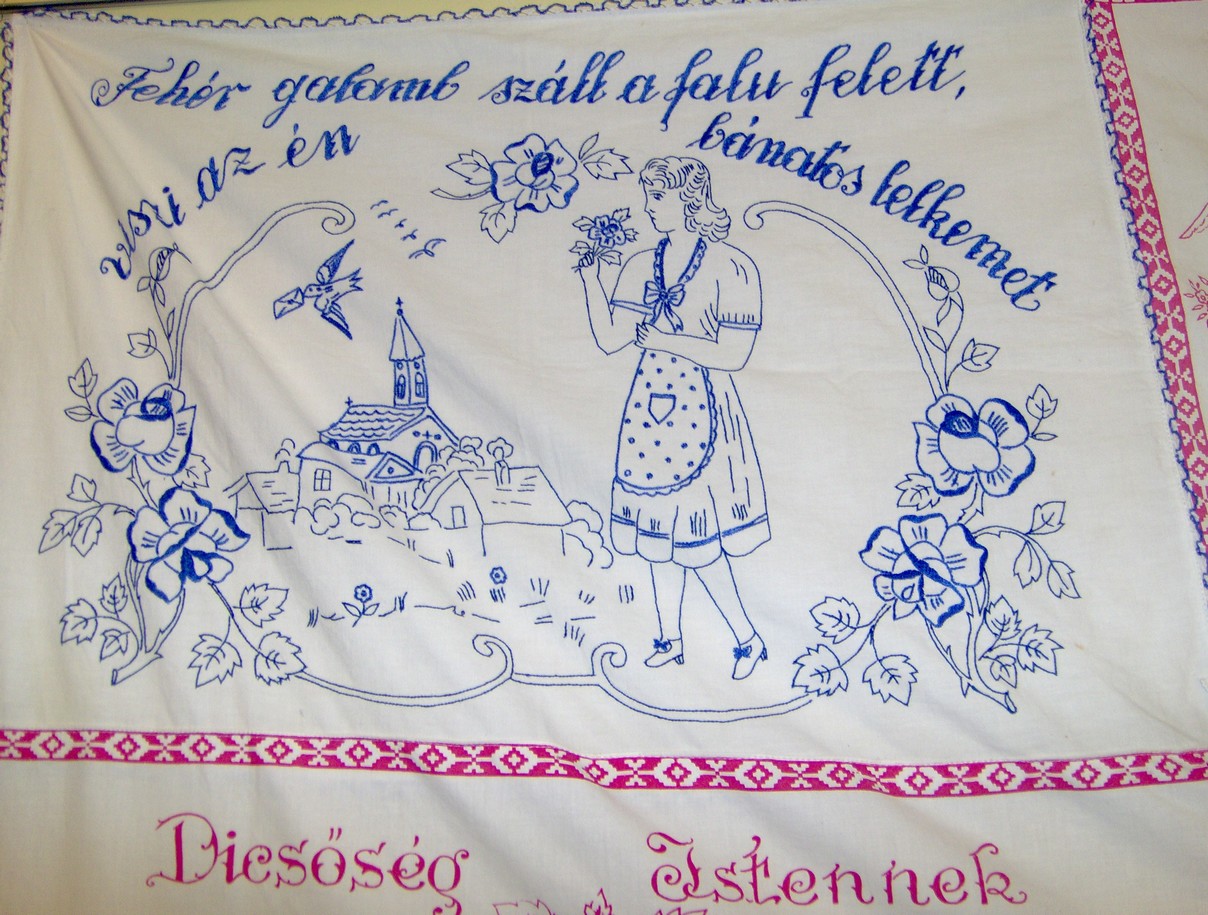 Fehér galamb száll a falu felett,
viszi az én bánatos lelkemet
Dicsőség Istennek